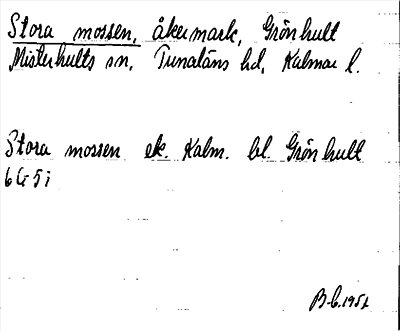 Stora mossen, åkermark, Grönhult
Misterhults sn, Tunaläns hd, Kalmar l.
Stora mossen ek. Kalm. bl. Grönhult
6G5i